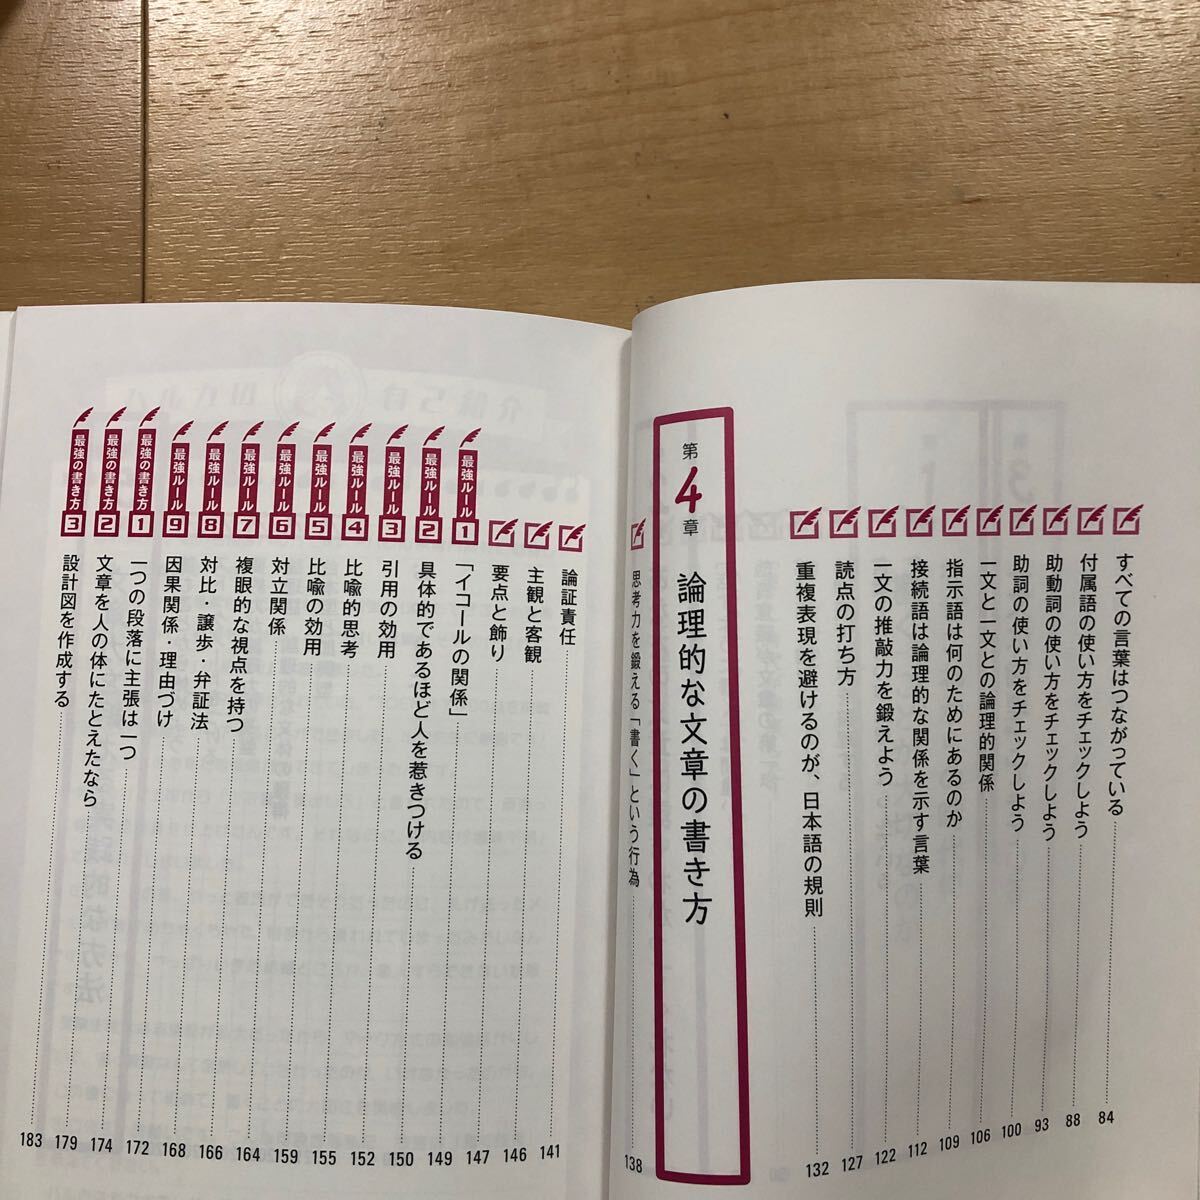 すべての言葉はつながっている 84
付属語の使い方をチェックしよう 88
助動詞の使い方をチェックしよう 93
助詞の使い方をチェックしよう 100
一文と一文との論理的関係 106
指示語は何のためにあるのか 109
接続語は論理的な関係を示す言葉 112
一文の推敲力を鍛えよう 122
読点の打ち方 127
重複表現を避けるのが、日本語の規則 132
第4章 論理的な文章の書き方
思考力を鍛える「書く」という行為 138
論証責任 141
主観と客観 146
要点と飾り 147
最強ルール1 「イコールの関係」 149
最強ルール2 具体的であるほど人を惹きつける 150
最強ルール3 引用の効用 152
最強ルール4 比喩的思考 155
最強ルール5 比喩の効用 159
最強ルール6 対立関係 164
最強ルール7 複眼的な視点を持つ 166
最強ルール8 対比・譲歩・弁証法 168
最強ルール9 因果関係・理由づけ 172
最強の書き方1 一つの段落に主張は一つ 174
最強の書き方2 文章を人の体にたとえたなら 179
最強の書き方3 設計図を作成する 183